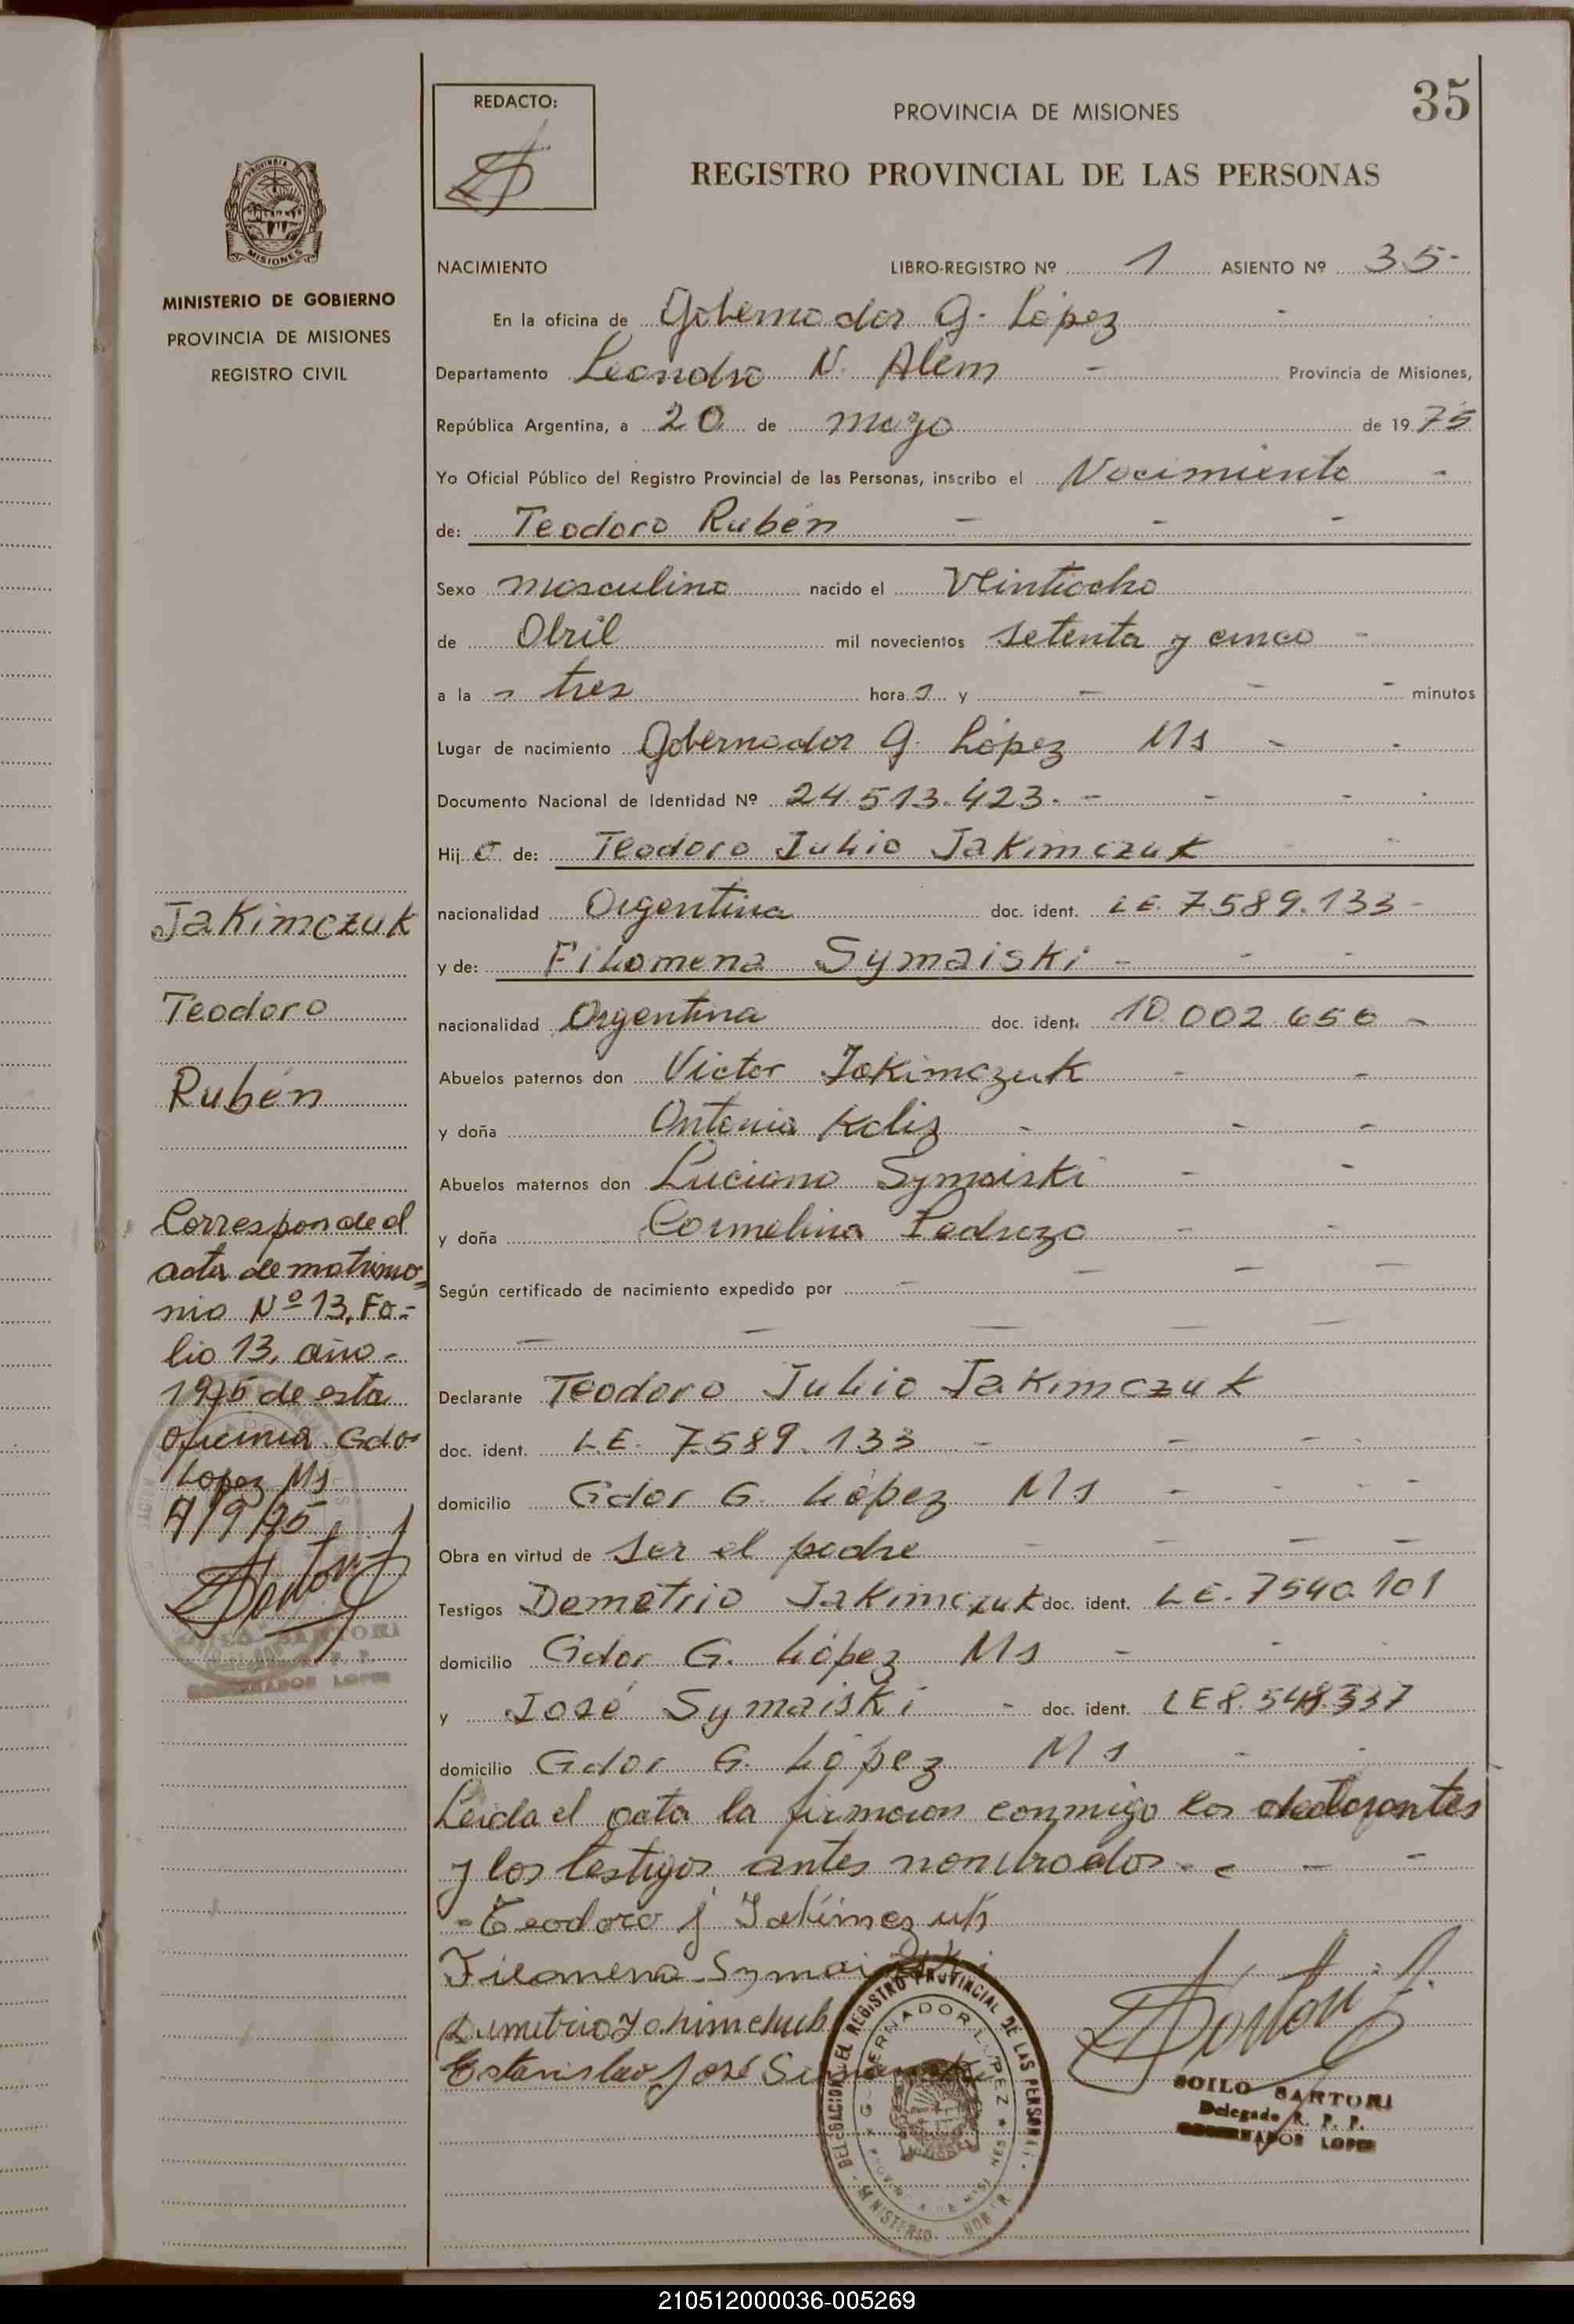 35
REDACTO:
PROVINCIA DE MISIONES
REGISTRO PROVINCIAL DE LAS PERSONAS
MISIONES
MINISTERIO DE GOBIERNO
PROVINCIA DE MISIONES
REGISTRO CIVIL
NACIMIENTO LIBRO-REGISTRO Nº 1 ASIENTO Nº 35-
En la oficina de Gobernador G. López -
Departamento Leandro N. Alem - Provincia de Misiones,
República Argentina, a 20 de mayo de 1975
Yo Oficial Público del Registro Provincial de las Personas, inscribo el Nacimiento -
de: Teodoro Rubén - - -
Sexo masculino nacido el Veintiocho
de Abril mil novecientos setenta y cinco -
a la s tres hora s y - - - minutos
Lugar de nacimiento Gobernador G. López Ms - -
Documento Nacional de Identidad Nº 24.513.423. - - - -
Hij o de: Teodoro Julio Jakimczuk - -
nacionalidad Argentina doc. ident. LE. 7.589.133 -
y de: Filomena Symaiski - - -
nacionalidad Argentina doc. ident. 10.002.656 -
Abuelos paternos don Victor Jakimczuk - -
y doña Antonia Kaliz - - -
Abuelos maternos don Luciano Symaiski - -
y doña Carmelina Pedrozo - -
Según certificado de nacimiento expedido por - - - -
- - - - - -
Declarante Teodoro Julio Jakimczuk
doc. ident. L.E. 7.589.133 - - -
domicilio Gdor G. López Ms - - - -
Obra en virtud de ser el padre - - - -
Testigos Demetrio Jakimczuk doc. ident. LE. 7540.101
domicilio Gdor G. López Ms - - -
y José Symaiski - doc. ident. LE 8.548.337
domicilio Gdor G. López Ms - -
Leida el acta la firmaron conmigo los declarantes
y los testigos antes nombrados. - - -
Teodoro J Jakimczuk
Filomena Symaiski
Demetrio Jakimchuk
Estanislao José
Jakimczuk
Teodoro
Rubén
Corresponde al
acta de matrimo=
nio Nº 13, Fo.-
lio 13, año -
1975 de esta
oficina. Gdor
Lopez Ms
4/9/75
ZOILO SARTORI
Delegado R. P. P.
GOBERNADOR LOPEZ
DELEGACION EL REGISTRO PROVINCIAL DE LAS PERSONAS
GOBERNADOR LOPEZ
PROVINCIA DE MISIONES
MINISTERIO GOBIER
ZOILO SARTORI
Delegado R. P. P.
GOBERNADOR LOPEZ
210512000036-005269